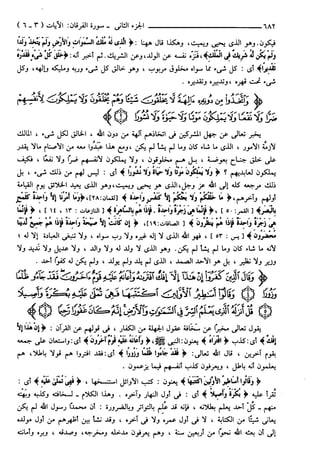 ٦٨٢ الجزء الثاني - سورة الفرقان: الآيات (٣ - ٦)
فيكون. وهو الذي يحيي ويميت، وهكذا قال ههنا: ﴿الَّذِي لَهُ مُلْكُ السَّمَوَاتِ وَالْأَرْضِ وَلَمْ يَتَّخِذْ وَلَدًا
وَلَمْ يَكُن لَّهُ شَرِيكٌ فِي الْمُلْكِ﴾، فنزه نفسه عن الولد، وعن الشريك. ثم أخبر أنه: ﴿خَلَقَ كُلَّ شَيْءٍ فَقَدَّرَهُ
تَقْدِيرًا﴾ أي: كل شيء مما سواه مخلوق مربوب، وهو خالق كل شيء وربه ومليكه وإلهه، وكل
شيء تحت قهره، وتدبيره وتقديره.
وَاتَّخَذُوا مِن دُونِهِ آلِهَةً لَّا يَخْلُقُونَ شَيْئًا وَهُمْ يُخْلَقُونَ وَلَا يَمْلِكُونَ لِأَنفُسِهِمْ
ضَرًّا وَلَا نَفْعًا وَلَا يَمْلِكُونَ مَوْتًا وَلَا حَيَاةً وَلَا نُشُورًا
يخبر تعالى عن جهل المشركين في اتخاذهم آلهة من دون الله، الخالق لكل شيء، المالك
لأزمة الأمور، الذي ما شاء كان وما لم يشأ لم يكن. ومع هذا عبدوا معه من الأصنام مالا يقدر
على خلق جناح بعوضة، بل هم مخلوقون، ولا يملكون لأنفسهم ضراً ولا نفعاً، فكيف
يملكون لعابديهم؟ ﴿وَلَا يَمْلِكُونَ مَوْتًا وَلَا حَيَاةً وَلَا نُشُورًا﴾ أي: ليس لهم من ذلك شيء، بل
ذلك مرجعه كله إلى الله عز وجل، الذي هو يحيي ويميت، وهو الذي يعيد الخلائق يوم القيامة
أولهم وآخرهم، ﴿مَّا خَلْقُكُمْ وَلَا بَعْثُكُمْ إِلَّا كَنَفْسٍ وَاحِدَةٍ﴾ [لقمان: ٢٨]، ﴿وَمَا أَمْرُنَا إِلَّا وَاحِدَةٌ كَلَمْحٍ
بِالْبَصَرِ﴾ [القمر: ٥٠]، ﴿فَإِنَّمَا هِيَ زَجْرَةٌ وَاحِدَةٌ. فَإِذَا هُم بِالسَّاهِرَةِ﴾ [النازعات: ١٣، ١٤]، ﴿فَإِنَّمَا
هِيَ زَجْرَةٌ وَاحِدَةٌ فَإِذَا هُمْ يَنظُرُونَ﴾ [الصافات: ١٩]، ﴿إِن كَانَتْ إِلَّا صَيْحَةً وَاحِدَةً فَإِذَا هُمْ جَمِيعٌ لَّدَيْنَا
مُحْضَرُونَ﴾ [يس: ٥٣]. فهو الله الذي لا إله غيره ولا رب سواه، ولا تنبغي العبادة إلا له،
لأنه ما شاء كان وما لم يشأ لم يكن. وهو الذي لا ولد له ولا والد، ولا عديل ولا نديد ولا
وزير ولا نظير، بل هو الأحد الصمد، الذي لم يلد ولم يولد، ولم يكن له كفواً أحد.
وَقَالَ الَّذِينَ كَفَرُوا إِنْ هَذَا إِلَّا إِفْكٌ افْتَرَاهُ وَأَعَانَهُ عَلَيْهِ قَوْمٌ آخَرُونَ فَقَدْ جَاءُوا ظُلْمًا
وَزُورًا وَقَالُوا أَسَاطِيرُ الْأَوَّلِينَ اكْتَتَبَهَا فَهِيَ تُمْلَى عَلَيْهِ بُكْرَةً وَأَصِيلًا
يقول تعالى مخبراً عن سخافة عقول الجهلة من الكفار، في قولهم عن القرآن: ﴿إِنْ هَذَا إِلَّا
إِفْكٌ﴾ أي: كذب ﴿افْتَرَاهُ﴾ يعنون: النبي ﷺ، ﴿وَأَعَانَهُ عَلَيْهِ قَوْمٌ آخَرُونَ﴾ أي: واستعان على جمعه
بقوم آخرين، قال الله تعالى: ﴿فَقَدْ جَاءُوا ظُلْمًا وَزُورًا﴾ أي: فقد افتروا هم قولاً باطلاً، هم
يعلمون أنه باطل، ويعرفون كذب أنفسهم فيما يزعمون.
﴿وَقَالُوا أَسَاطِيرُ الْأَوَّلِينَ اكْتَتَبَهَا﴾ يعنون: كتب الأوائل استنسخها، ﴿فَهِيَ تُمْلَى عَلَيْهِ﴾ أي:
تُقرأ عليه ﴿بُكْرَةً وَأَصِيلًا﴾ أي: في أول النهار وآخره. وهذا الكلام - لسخافته وكذبه وبهته
منهم - كل أحد يعلم بطلانه، فإنه قد علم بالتواتر وبالضرورة: أن محمداً رسول الله لم يكن
يعاني شيئاً من الكتابة، لا في أول عمره ولا في آخره، وقد نشأ بين أظهرهم من أول مولده
إلى أن بعثه الله نحواً من أربعين سنة، وهم يعرفون مدخله ومخرجه، وصدقه، وبره وأمانته